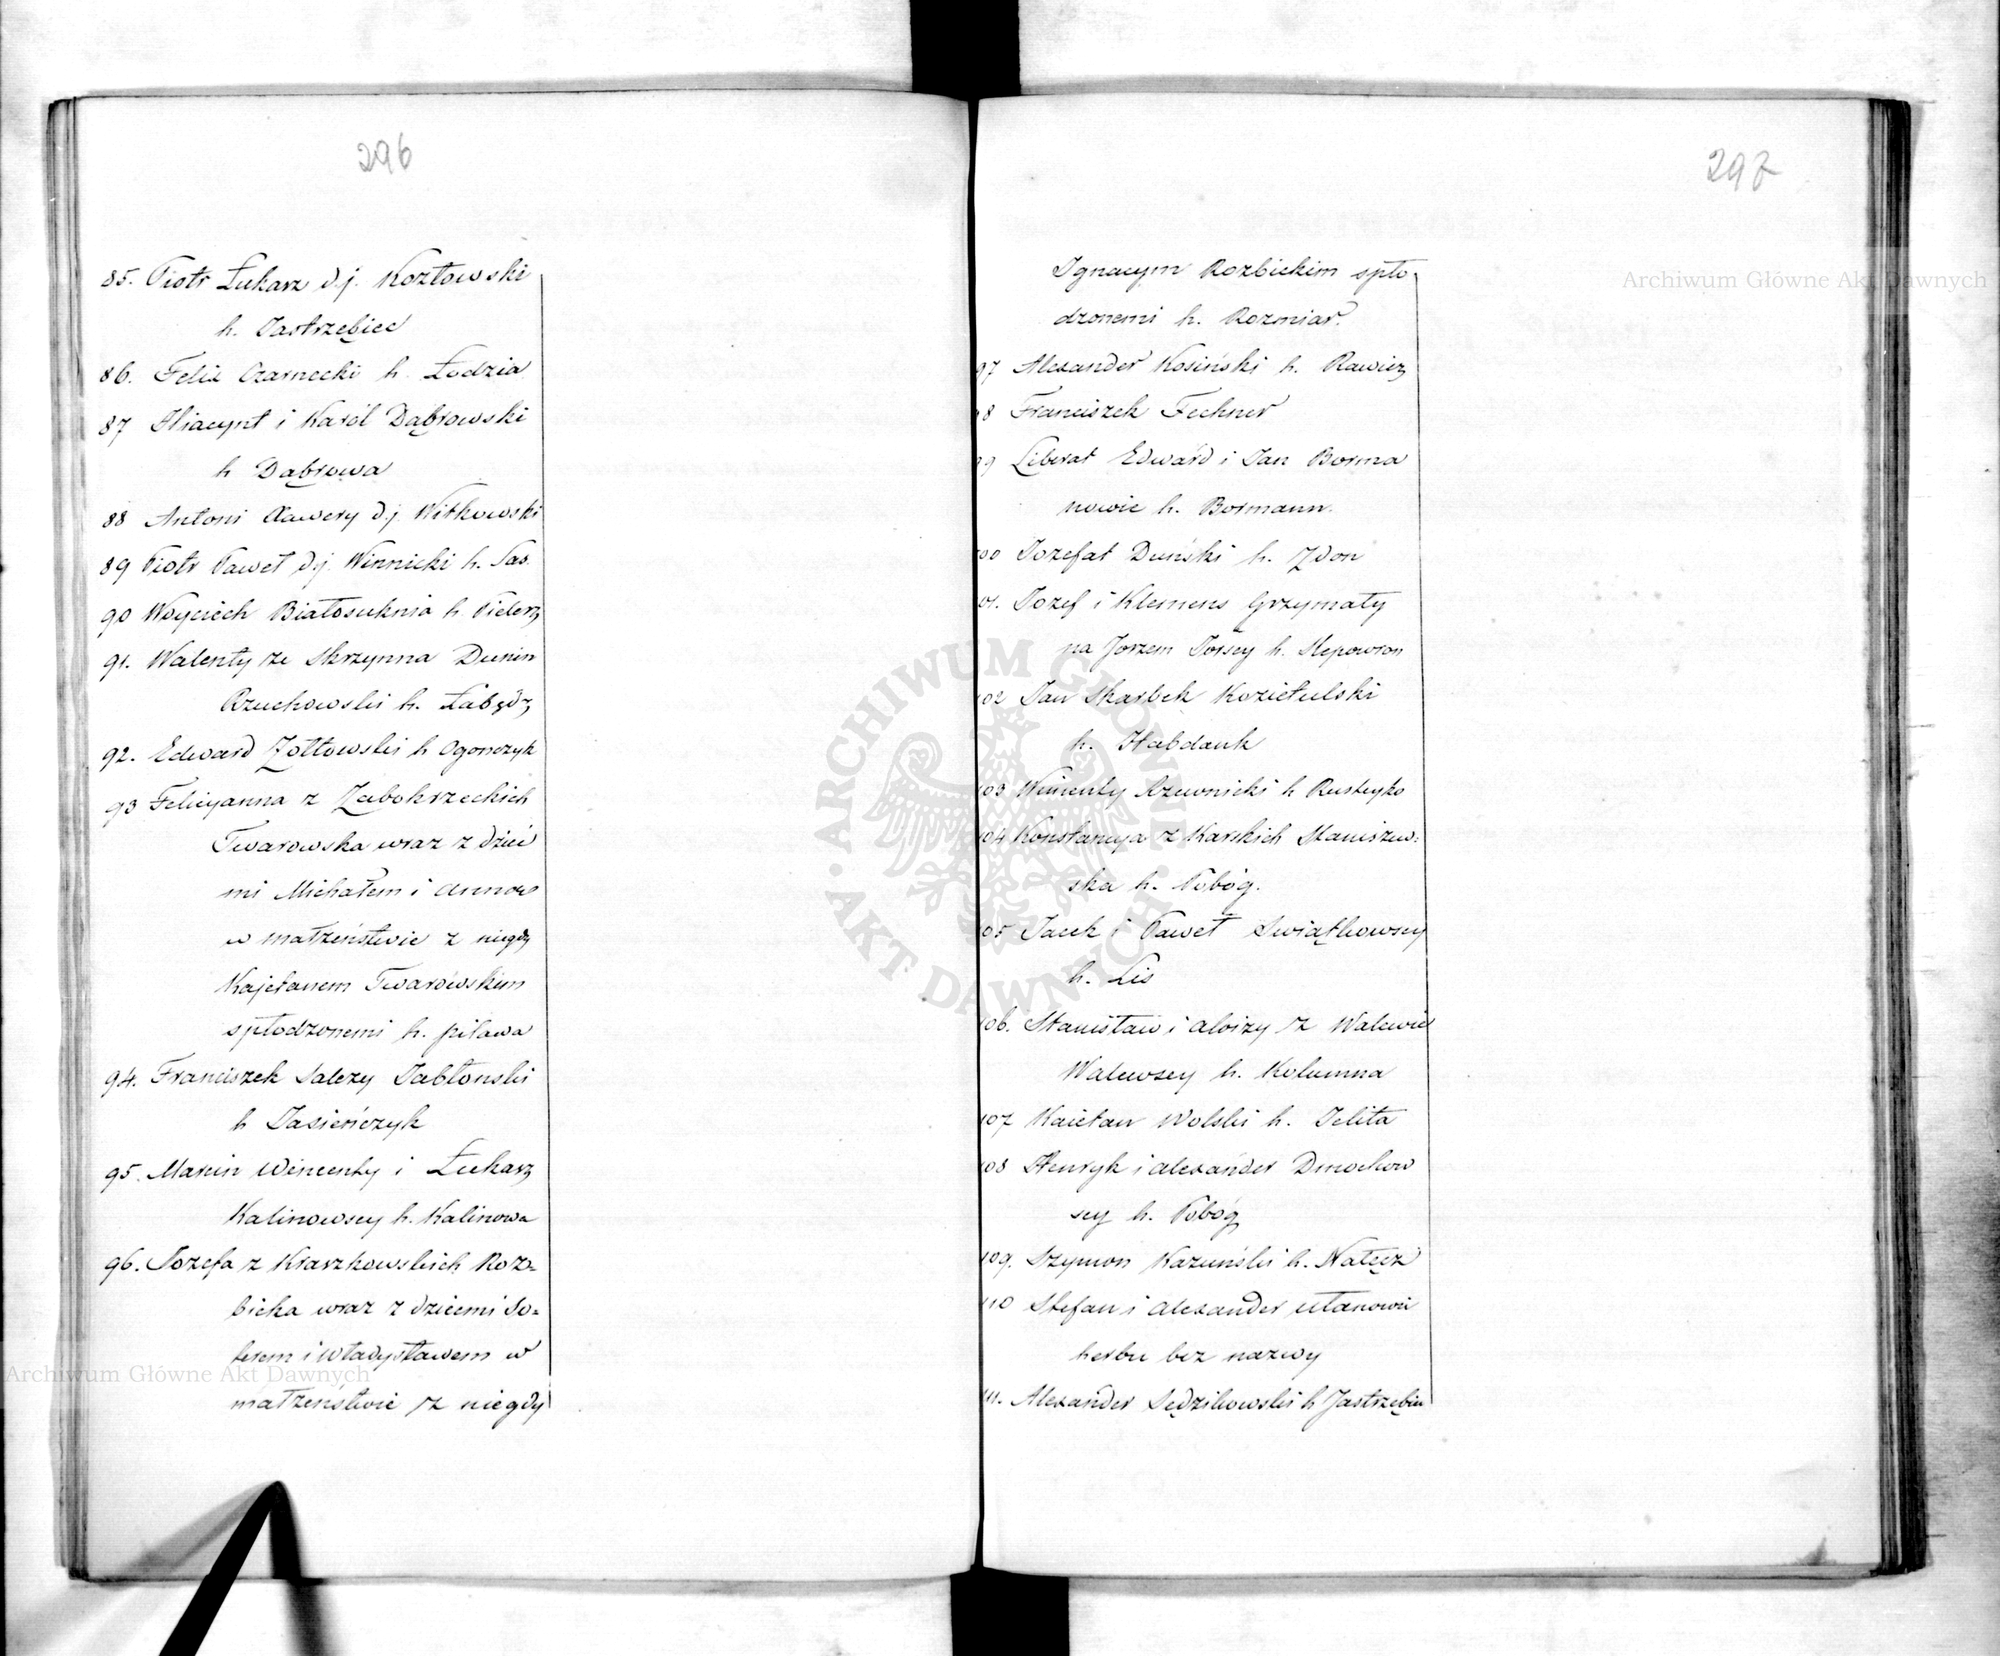 296
85. Piotr Łukarz d.j. Kozłowski
h. Jastrzębiec
86. Felix Czarnecki h. Łodzia
87 Hiacynt i Karól Dąbrowski
h Dąbrowa
88 Antoni Xawery d.j. Witkowski
89 Piotr Paweł d.j. Winnicki h. Sas.
90 Woyciech Białosuknia h. Pielerz
91. Walenty ze Skrzynna Dunin
Rzuchowski h. Łabędz
92. Edward Zółtowski h Ogonczyk
93 Felicyanna z Zabokrzeckich
Twarowska wraz z dzieć
mi Michałem i Anną
w małżeństwie z niegdy
Kajetanem Twarówskim
spłodzonemi h. piława
94. Franciszek Salezy Jabłonski
h Jasieńczyk
95. Marcin Wincenty i Łukasz
Kalinowscy h. Kalinowa
96. Jozefa z Kraszkowskich Roz=
bicka wraz z dziećmi So=
terem i Władysławem w
małżeństwie z niegdy
297
Ignacym Rozbickim spło
dzonemi h. Rozmiar.
97 Alexander Kosiński h. Rawicz
98 Franciszek Fechner
99 Liberat Edward i Jan Borma
nowie h. Bormann.
100 Jozefat Duński h. Zdon
101. Jozef i Klemens Grzymały
na Jorzem Jorscy h. Slepowron
102 Jan Skarbek Kozietulski
h. Habdank
103 Wincenty Szewnicki h Rustejko
104 Konstancya z Karskich Staniszew:
ska h. Pobóg.
105 Jacek i Paweł Swiątkowscy
h. Lis
106. Stanisław i Aloizy z Walewic
Walewscy h. Kolumna
107 Kaietan Wolski h. Jelita
108 Henryk i Alexander Dmochow
scy h. Pobóg
109. Szymon Kazuński h. Nałęcz
110 Stefan i Alexander Ułanowie
herbu bez nazwy
111. Alexander Sędzikowski h Jastrzębiec
Archiwum Główne Akt Dawnych
Archiwum Główne Akt Dawnych
ARCHIWUM GŁÓWNE · AKT DAWNYCH ·